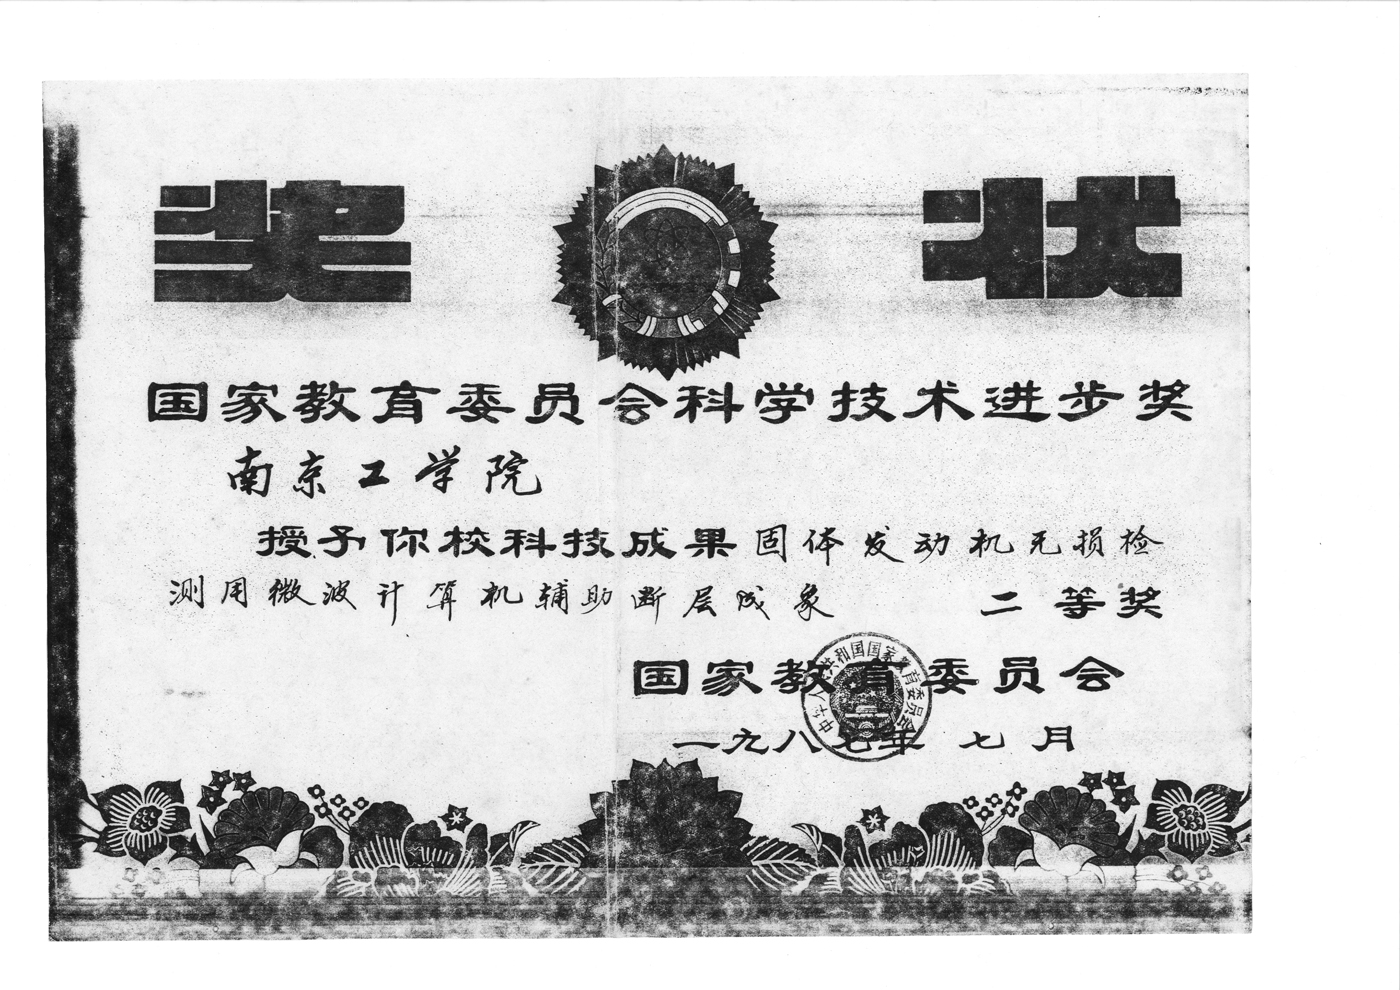 奖状
国家教育委员会科学技术进步奖
南京工学院
授予你校科技成果固体发动机无损检
测用微波计算机辅助断层成象 二等奖
国家教育委员会
中华人民共和国国家教育委员会
一九八七年 七月